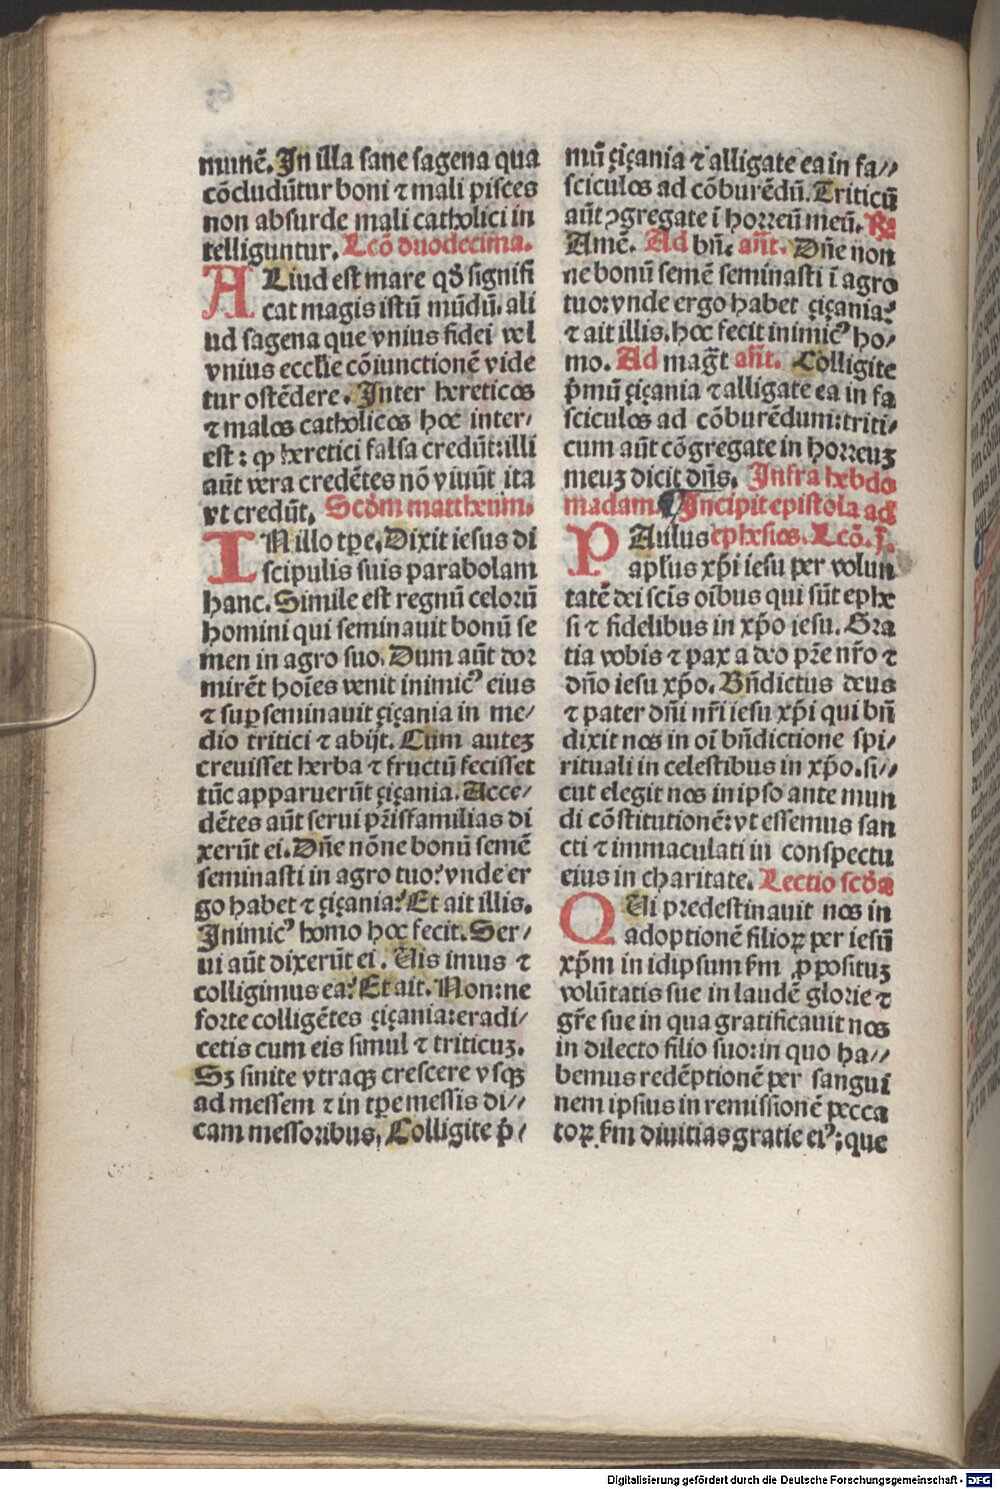 munē. In illa sane sagena qua
cōcludūtur boni ⁊ mali pisces
non absurde mali catholici in
telliguntur. Lcō duodecima.
ALiud est mare qđ signifi
cat magis istū mūdū. ali
ud sagena que vnius fidei vel
vnius eccl'ie cōiunctionē vide
tur ostēdere. Inter hereticos
⁊ malos catholicos hoc inter/
est: ꝙ heretici falsa credūt: illi
aūt vera credētes nō viuūt ita
vt credūt. Scd'm mattheum.
IN illo tpe. Dixit iesus di
scipulis suis parabolam
hanc. Simile est regnū celorū
homini qui seminauit bonū se
men in agro suo. Dum aūt dor
mirēt hoīes venit inimicꝰ eius
⁊ suꝑseminauit çiçania in me/
dio tritici ⁊ abijt. Cum auteꝫ
creuisset herba ⁊ fructū fecisset
tūc apparuerūt çiçania. Acce/
dētes aūt serui pr̄isfamilias di
xerūt ei. Dn̄e nōne bonū semē
seminasti in agro tuo? vnde er
go habet ⁊ çiçania? Et ait illis.
Inimicꝰ homo hoc fecit. Ser/
ui aūt dixerūt ei. Uis imus ⁊
colligimus ea? Et ait. Non: ne
forte colligētes çiçania: eradi/
cetis cum eis simul ⁊ triticuꝫ.
Sꝫ sinite vtraqꝫ crescere vsqꝫ
ad messem ⁊ in tp̄e messis di//
cam messoribus. Colligite p̄/
mū çiçania ⁊ alligate ea in fa//
sciculos ad cōburēdū. Triticū
aūt ꝯgregate ī horreū meū. ℞
Amē. Ad bn̄. an̄t. Dn̄e non
ne bonū semē seminasti ī agro
tuo: vnde ergo habet çiçania?
⁊ ait illis. hoc fecit inimicꝰ ho/
mo. Ad magt̄ an̄t. Colligite
p̄mū çiçania ⁊ alligate ea in fa
sciculos ad cōburēdum: triti/
cum aūt cōgregate in horreuꝫ
meuꝫ dicit dn̄s. Infra hebdo
madam. Incipit epistola ad
PAulus ephesios. Lcō. j.
apl'us xp̄i iesu per volun
tatē dei scīs oībus qui sūt ephe
si ⁊ fidelibus in xp̄o iesu. Gra
tia vobis ⁊ pax a deo pr̄e nr̄o ⁊
dn̄o iesu xp̄o. Bn̄dictus deus
⁊ pater dn̄i nr̄i iesu xp̄i qui bn̄
dixit nos in oī bn̄dictione spi/
rituali in celestibus in xp̄o. si//
cut elegit nos in ipso ante mun
di cōstitutionē: vt essemus san
cti ⁊ immaculati in conspectu
eius in charitate. Lectio scd'a
QUi predestinauit nos in
adoptionē filioꝝ per iesū
xp̄m in idipsum km̄ ꝓposituꝫ
volūtatis sue in laudē glorie ⁊
gr̄e sue in qua gratificauit nos
in dilecto filio suo: in quo ha//
bemus redēptionē per sangui
nem ipsius in remissionē pecca
toꝝ. km̄ diuitias gratie eiꝰ: que
Digitalisierung gefördert durch die Deutsche Forschungsgemeinschaft - DFG